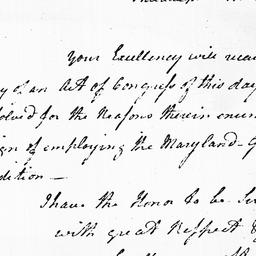 Your Excellency will rec
y of an Act of Congress of this day
olved for the Reasons therein enum
ign of employing the Maryland
dition —
I have the Honor to be
with great Respect